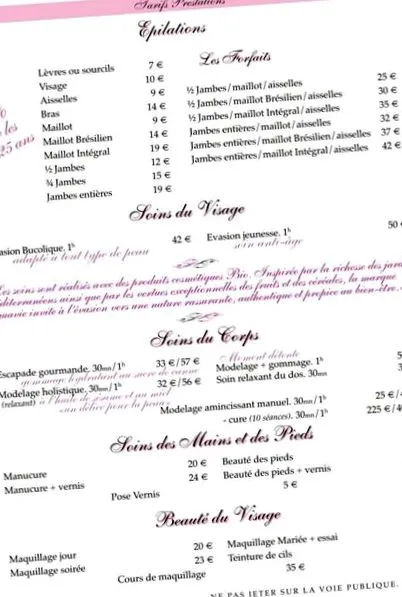 Tarifs Prestations
Epilations
Lèvres ou sourcils 7 €
Visage 10 €
Aisselles 9 €
Bras 14 €
Maillot 9 €
Maillot Brésilien 14 €
Maillot Intégral 19 €
½ Jambes 12 €
¾ Jambes 15 €
Jambes entières 19 €
les
25 ans
Les Forfaits
½ Jambes/maillot/aisselles 25 €
½ Jambes/maillot Brésilien/aisselles 30 €
½ Jambes/maillot Intégral/aisselles 35 €
Jambes entières/maillot/aisselles 32 €
Jambes entières/maillot Brésilien/aisselles 37 €
Jambes entières/maillot Intégral/aisselles 42 €
Soins du Visage
asion Bucolique. 1h 42 €
adapté à tout type de peau
Evasion jeunesse. 1h 50
soin anti-âge
es soins sont réalisés avec des produits cosmétiques Bio. Inspirée par la richesse des jar
diterranéens ainsi que par les vertues exceptionnelles des fruits et des céréales, la marque
invite à l'évasion vers une nature rassurante, authentique et propice au bien-être.
Soins du Corps
scapade gourmande. 30mn/1h 33 €/57 €
gommage hydratant au sucre de canne
Modelage holistique. 30mn/1h 32 €/56 €
(relaxant) à l'huile de sésame et au miel
un délice pour la peau
Moment détente
Modelage + gommage. 1h 5
Soin relaxant du dos. 30mn 3
Modelage amincissant manuel. 30mn/1h 25 €/
- cure (10 séances). 30mn/1h 225 €/
Soins des Mains et des Pieds
Manucure 20 €
Manucure + vernis 24 €
Beauté des pieds
Beauté des pieds + vernis
Pose Vernis 5 €
Beauté du Visage
Maquillage jour 20 €
Maquillage soirée 23 €
Maquillage Mariée + essai
Teinture de cils
Cours de maquillage 35 €
NE PAS JETER SUR LA VOIE PUBLIQUE.